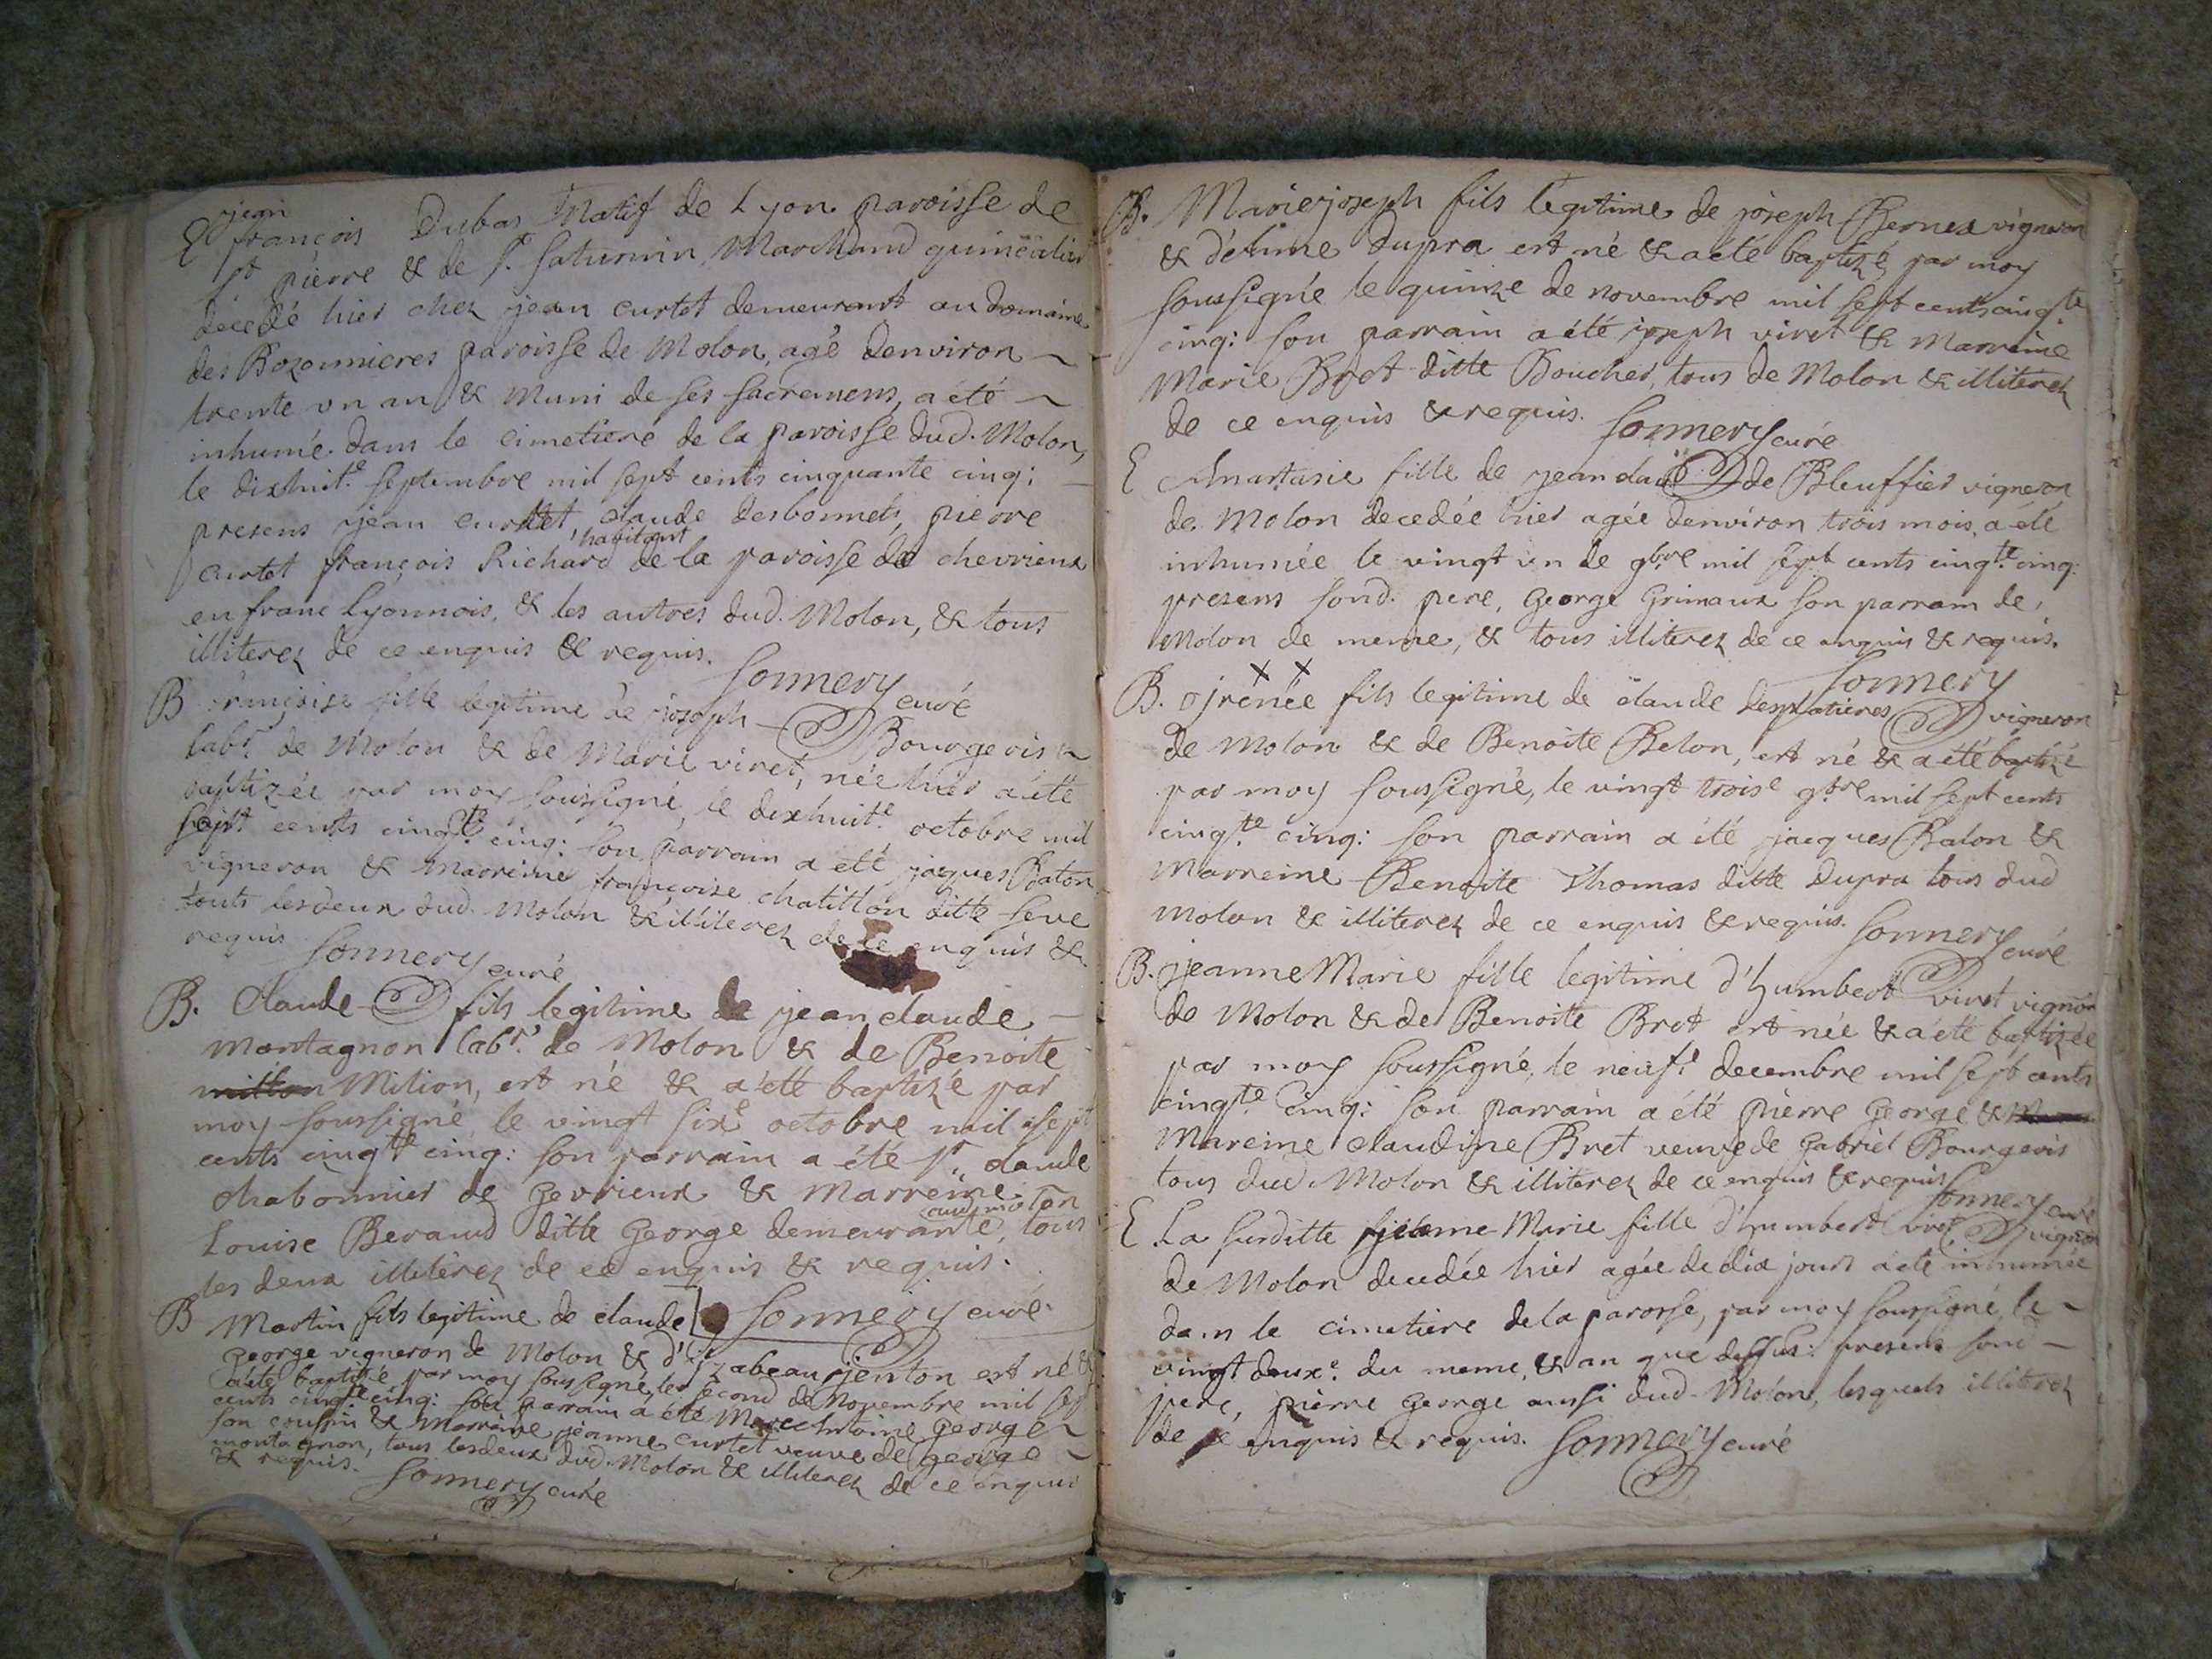 E jean
françois Dubas Natif de Lyon paroisse de
St pierre & de St. Saturnin, Marchand quincalier
décedé hier chez jean curtet demeurant au domaine
des Bozonnieres paroisse de Molon, agé denviron
trente un an & muni de ses sacremens, a été
inhumé dans le cimetiere de la paroisse dud. Molon,
le dixhuite. septembre mil sept cents cinquante cinq:
presens jean curtet, claude desbonnets, pierre
curtet françois Richard habitant de la paroisse de chevrieux
en franc lyonnois, & les autres dud. Molon, & tous
illiterez de ce enquis & requis.
Sonnery curé
B françoise fille legitime de joseph Bourgeois
labr. de Molon & de Marie viret, née hier a été
baptizée par moy soussigné, le dixhuite. octobre mil
sept cents cinqte. cinq: son parrain a eté jacques Baton
vigneron & marreine françoise chatillon ditte seve
touts lesdeux dud. Molon & illiterez de ce enquis &
requis Sonnery curé
B. Claude fils legitime de jean claude
montagnon labr. de Molon & de Benoite
Milion, est né & a été baptizé par
moy soussigné le vingt sixe octobre mil sept
cents cinqte cinq: son parrain a été pr. claude
chabonnier de Gevrieux & marreine
Louise Beraud ditte George demeurante aud. molon, tous
les deux illiterez de ce enquis & requis.
Sonnery curé
B Martin fils legitime de claude
George vigneron de Molon & d'izabeau jenton est né &
a été baptizé par moy soussigné, le second de Novembre mil sept
cents cinqte. cinq: son parrain a été Marc Antoine George
son coussin & marreine jeanne curtet veuve de George
montagnon, tous lesdeux dud. Molon & illiterez de ce enquis
& requis. Sonnery curé
B. Marie joseph fils legitime de joseph Bernex vigneron
& d'etiene Dupra est né & a été baptizé par moy
soussigné le quinze de novembre mil sept cents cinqte.
cinq: son parrain a été joseph viret & marreine
Marie Bret ditte Boucher, tous de Molon & illiterez
de ce enquis & requis. Sonnery curé
E Anastasie fille de jean claude Bleuffier vigneron
de Molon decedée hier agée denviron trois mois, a été
inhumée le vingt un de 9bre mil sept cents cinqte. cinq:
presens sond. pere, George Grimaux son parrain de
Molon de meme, & tous illiterez de ce enquis & requis.
Sonnery
B. jrénée fils legitime de claude desplatieres vigneron
de Molon & de Benoite Belon, est né & a été baptizé
par moy soussigné, le vingt troise 9bre mil sept cents
cinqte. cinq: son parrain a été jacques Baton &
marreine Benoite Thomas ditte Dupra tous dud
Molon & illiterez de ce enquis & requis. Sonnery curé
B. jeanne Marie fille legitime d'humbert viret vigneron
de Molon & de Benoite Bret est née & a été baptizée
par moy soussigné, le neufe decembre mil sept cents
cinqte. cinq: son parrain a été pierre George &
Mareine claudine Bret veuve de Gabriel Bourgeois
tous dud. Molon & illiterez de ce enquis & requis
Sonnery curé
E La susditte jeanne Marie fille d'humbert viret vigneron
de Molon decedée hier agée de dix jours a été inhumée
dans le cimetiere dela paroisse, par moy soussigné, le
vingt deuxe. du meme, & an que dessus: presens sond
pere, pierre George aussi dud. Molon, lesquels illiterez
de ce enquis & requis. Sonnery curé